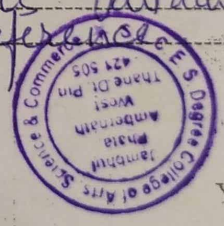 ference
Degree College of Arts Science & Commerce
Jambhul
Phata
Ambernath
West
Thane Dt Pin
421 505